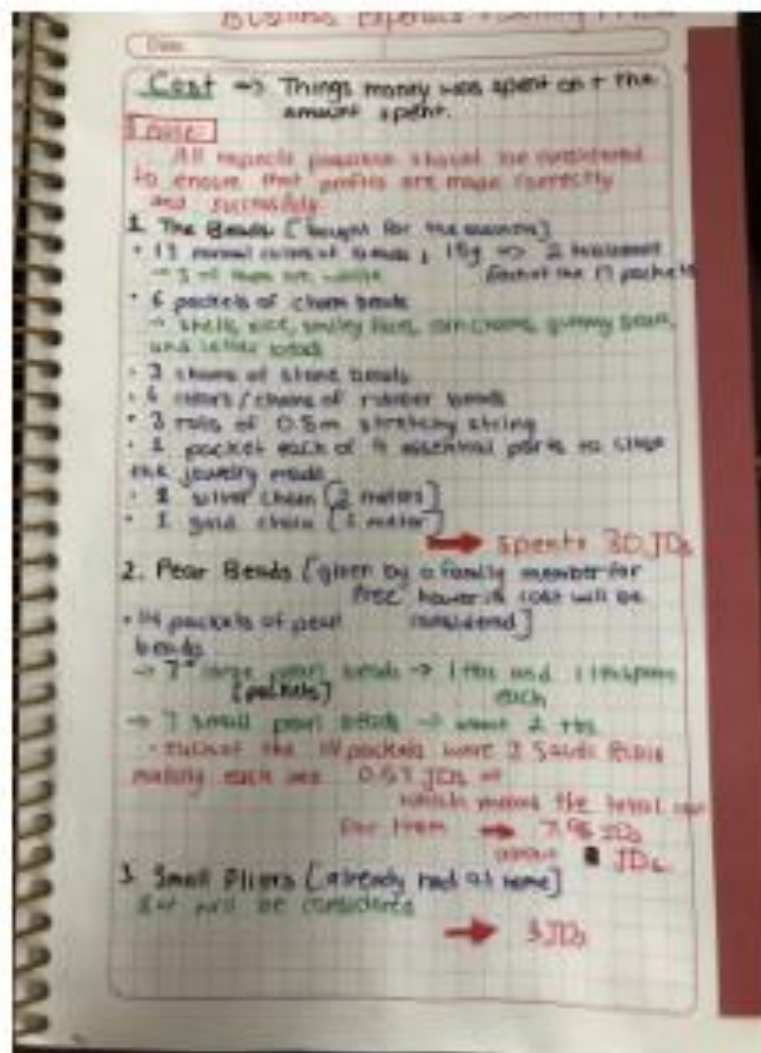 Business Expenses + Selling
Date:
Cost => Things money was spent on + the
amount spent.
All aspects possible should be considered
to ensure that profits are made correctly
and successfully
1. The Beads [bought for the business]
• 13 normal colors of beads, 15g => 2
→ 3 of them are white
• 6 packets of charm beads
→ shells, rice, smiley face, charms, gummy bears,
and letter beads
• 3 chains of stone beads
• 6 colors/chains of rubber bands
• 3 rolls of 0.5m stretchy string
• 1 packet each of 4 essential parts to close
the jewelry made
• silver chain [2 meters]
• 1 gold chain [1 meter]
→ spent = 30 JDs
2. Pear Beads [given by a family member for
free cost will be
considered]
• 14 packets of pearl
beads
→ 7 large pearl beads → 1 tbs and 1
[packets] each
→ 7 small pearl beads → about 2 tbs
• each of the 14 packets were 3 Saudi
making each one 0.57 JDs
which means the total
for them → 7.98 JDs
about JDs
3. Small Pliers [already had at home]
but will be considered
→ 3 JDs